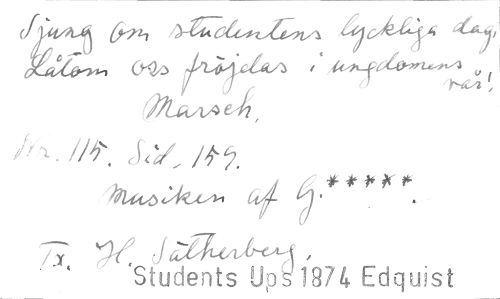 Sjung om studentens lyckliga dag,
Låtom oss fröjdas i ungdomens
vår!
Marsch.
Nr. 115. Sid. 159.
Musiken af G.*****.
Tx. H. Sätherberg.
Students Ups 1874 Edquist